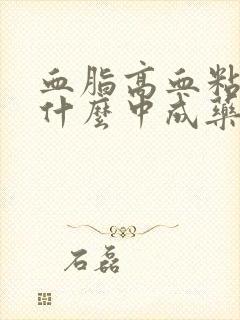 血脂高血粘
什麼中成藥
石磊